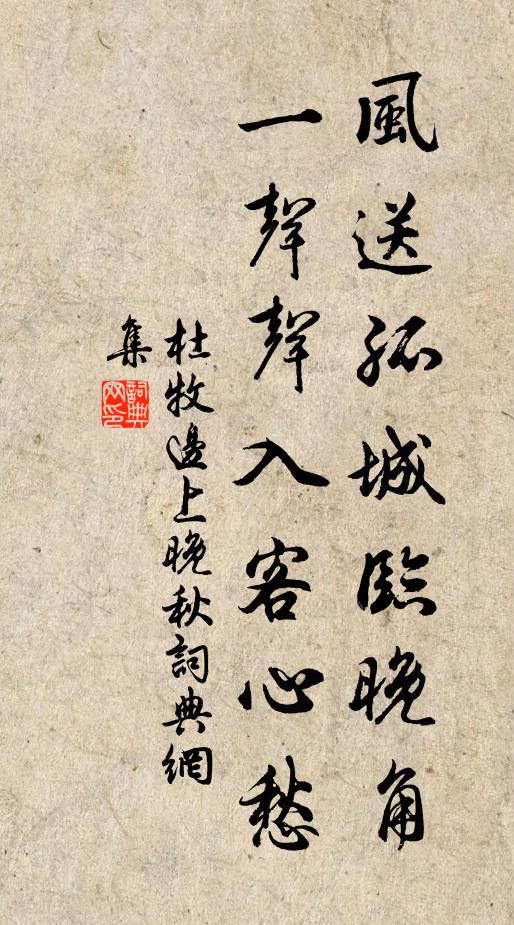 風送孤城臨晚角
一聲聲入客心愁
杜牧邊上晚秋詞典網
集
詞典網印